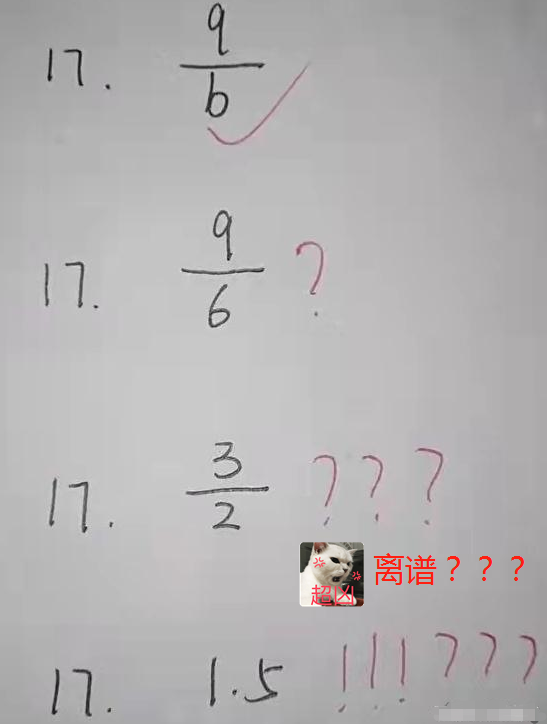 17. 9/b ✓
17. 9/6 ?
17. 3/2 ? ? ?
离谱？？？
超凶
17. 1.5 !!!???